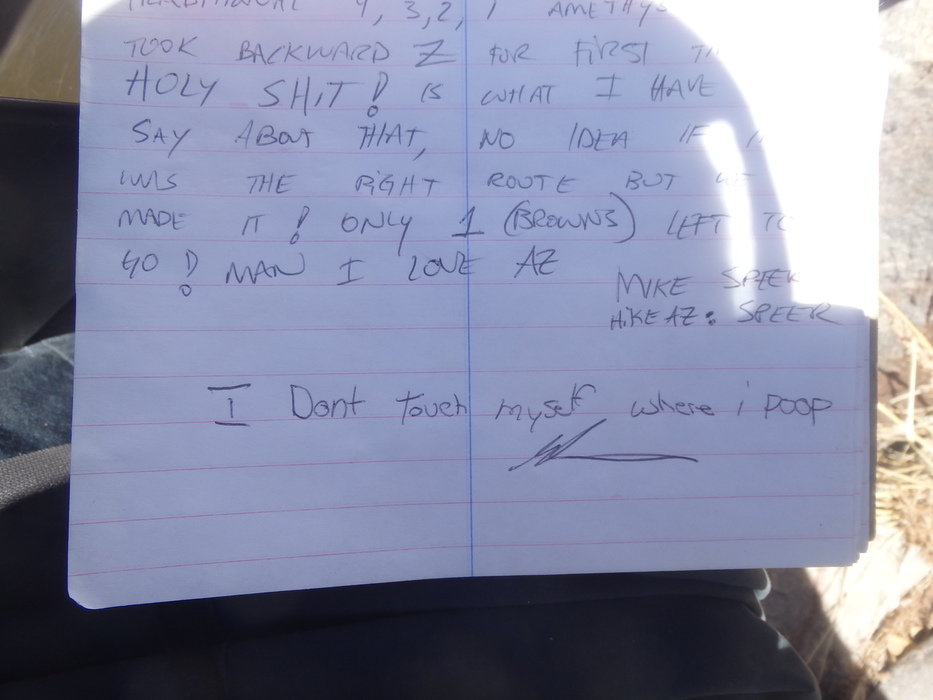 4, 3, 2, 1 AMETHYS
TOOK BACKWARD Z FOR FIRST
HOLY SHIT! IS WHAT I HAVE
SAY ABOUT THAT, NO IDEA IF
WAS THE RIGHT ROUTE BUT WE
MADE IT! ONLY 1 (BROWNS) LEFT TO
GO! MAN I LOVE AZ
MIKE SPEER
HIKEAZ: SPEER
I Dont touch myself where i poop